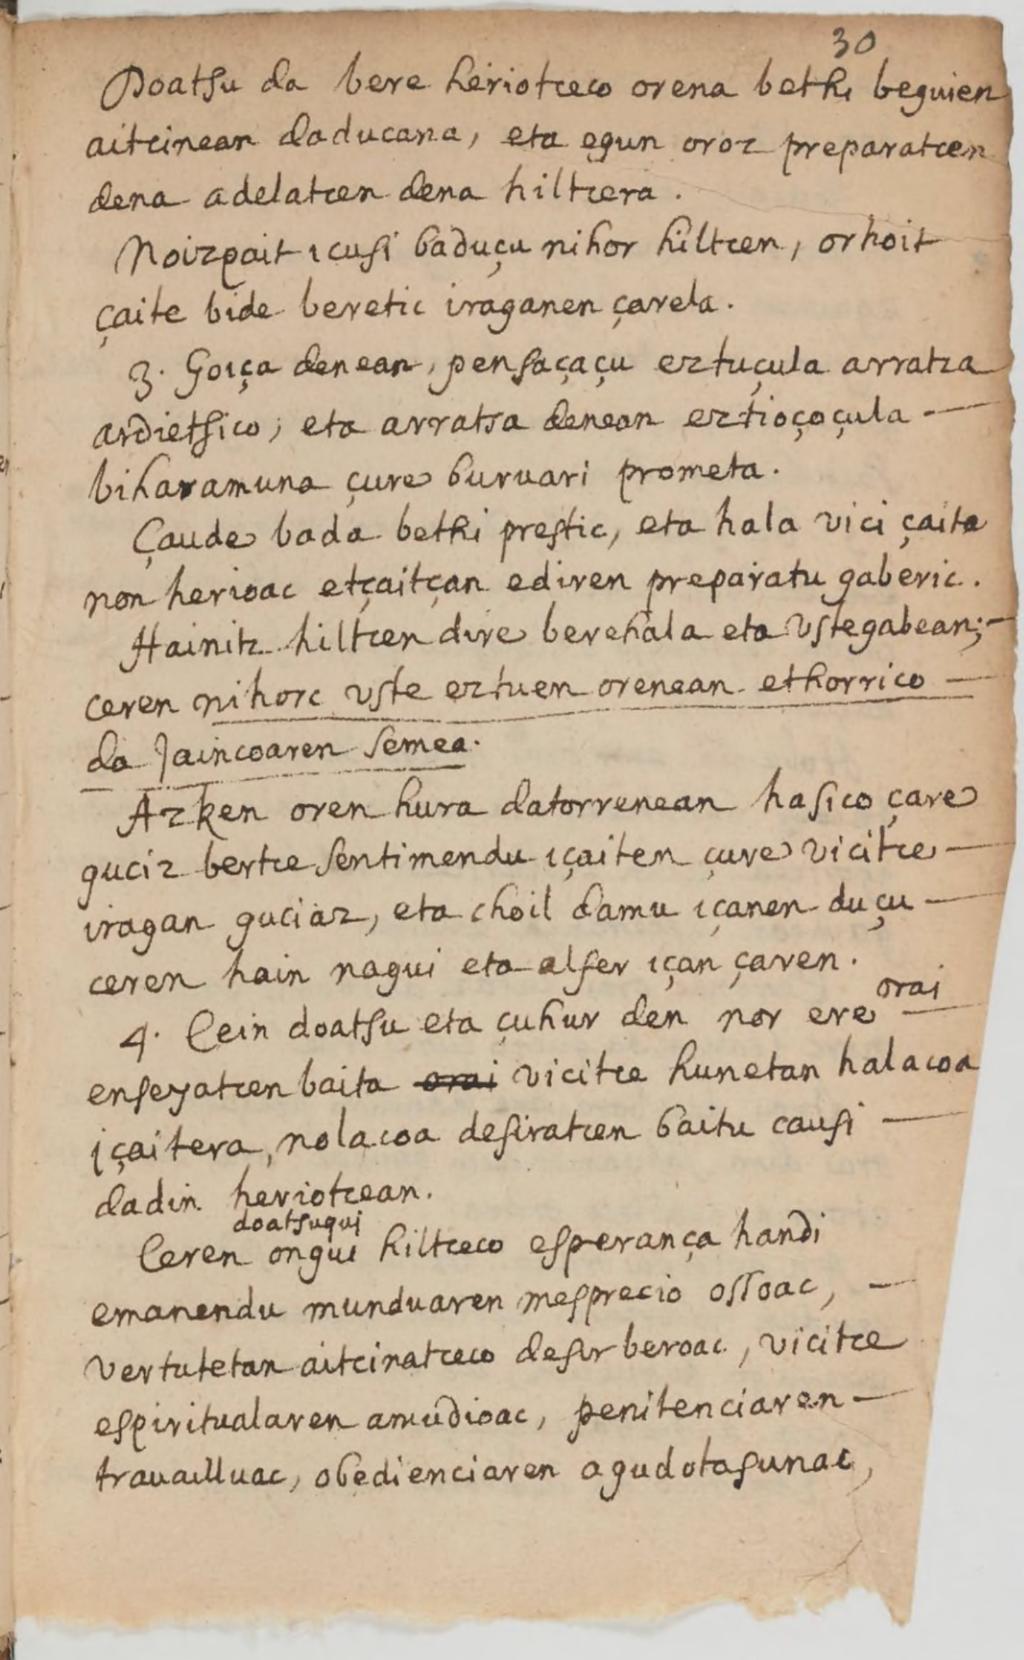 30
Doatsu da bere heriotceco orena bethi beguien
aitcinean daducana, eta egun oroz preparatcen
dena adelatcen dena hiltcera.
Noizpait icusi baduçu nihor hiltcen, orhoit
çaite bide beretic iraganen çarela.
3. Goiça denean, pensaçaçu eztuçula arratza
ardietsico; eta arratsa denean eztioçoçula —
biharamuna çure buruari prometa.
Çaude bada bethi prestic, eta hala vici çaite
non herioac etçaitçan ediren preparatu gaberic.
Hainitz hiltcen dire berehala eta vstegabean; —
ceren nihorc vste eztuen orenean ethorrico —
da Jaincoaren semea.
Azken oren hura datorrenean hasico çare
guciz bertce sentimendu içaiten çure vicitce —
iragan guciaz, eta choil damu içanen duçu —
ceren hain nagui eta alfer içan çaren.
orai
4. Cein doatsu eta çuhur den nor ere —
enseyatcen baita orai vicitce hunetan halacoa
içaitera, nolacoa desiratcen baitu causi —
dadin heriotcean.
doatsuqui
Ceren ongui hiltceco esperança handi
emanendu munduaren mesprecio ossoac, —
vertutetan aitcinatceco desir beroac, vicitce
espiritualaren amudioac, penitenciaren —
travailluac, obedienciaren agudotasunac,